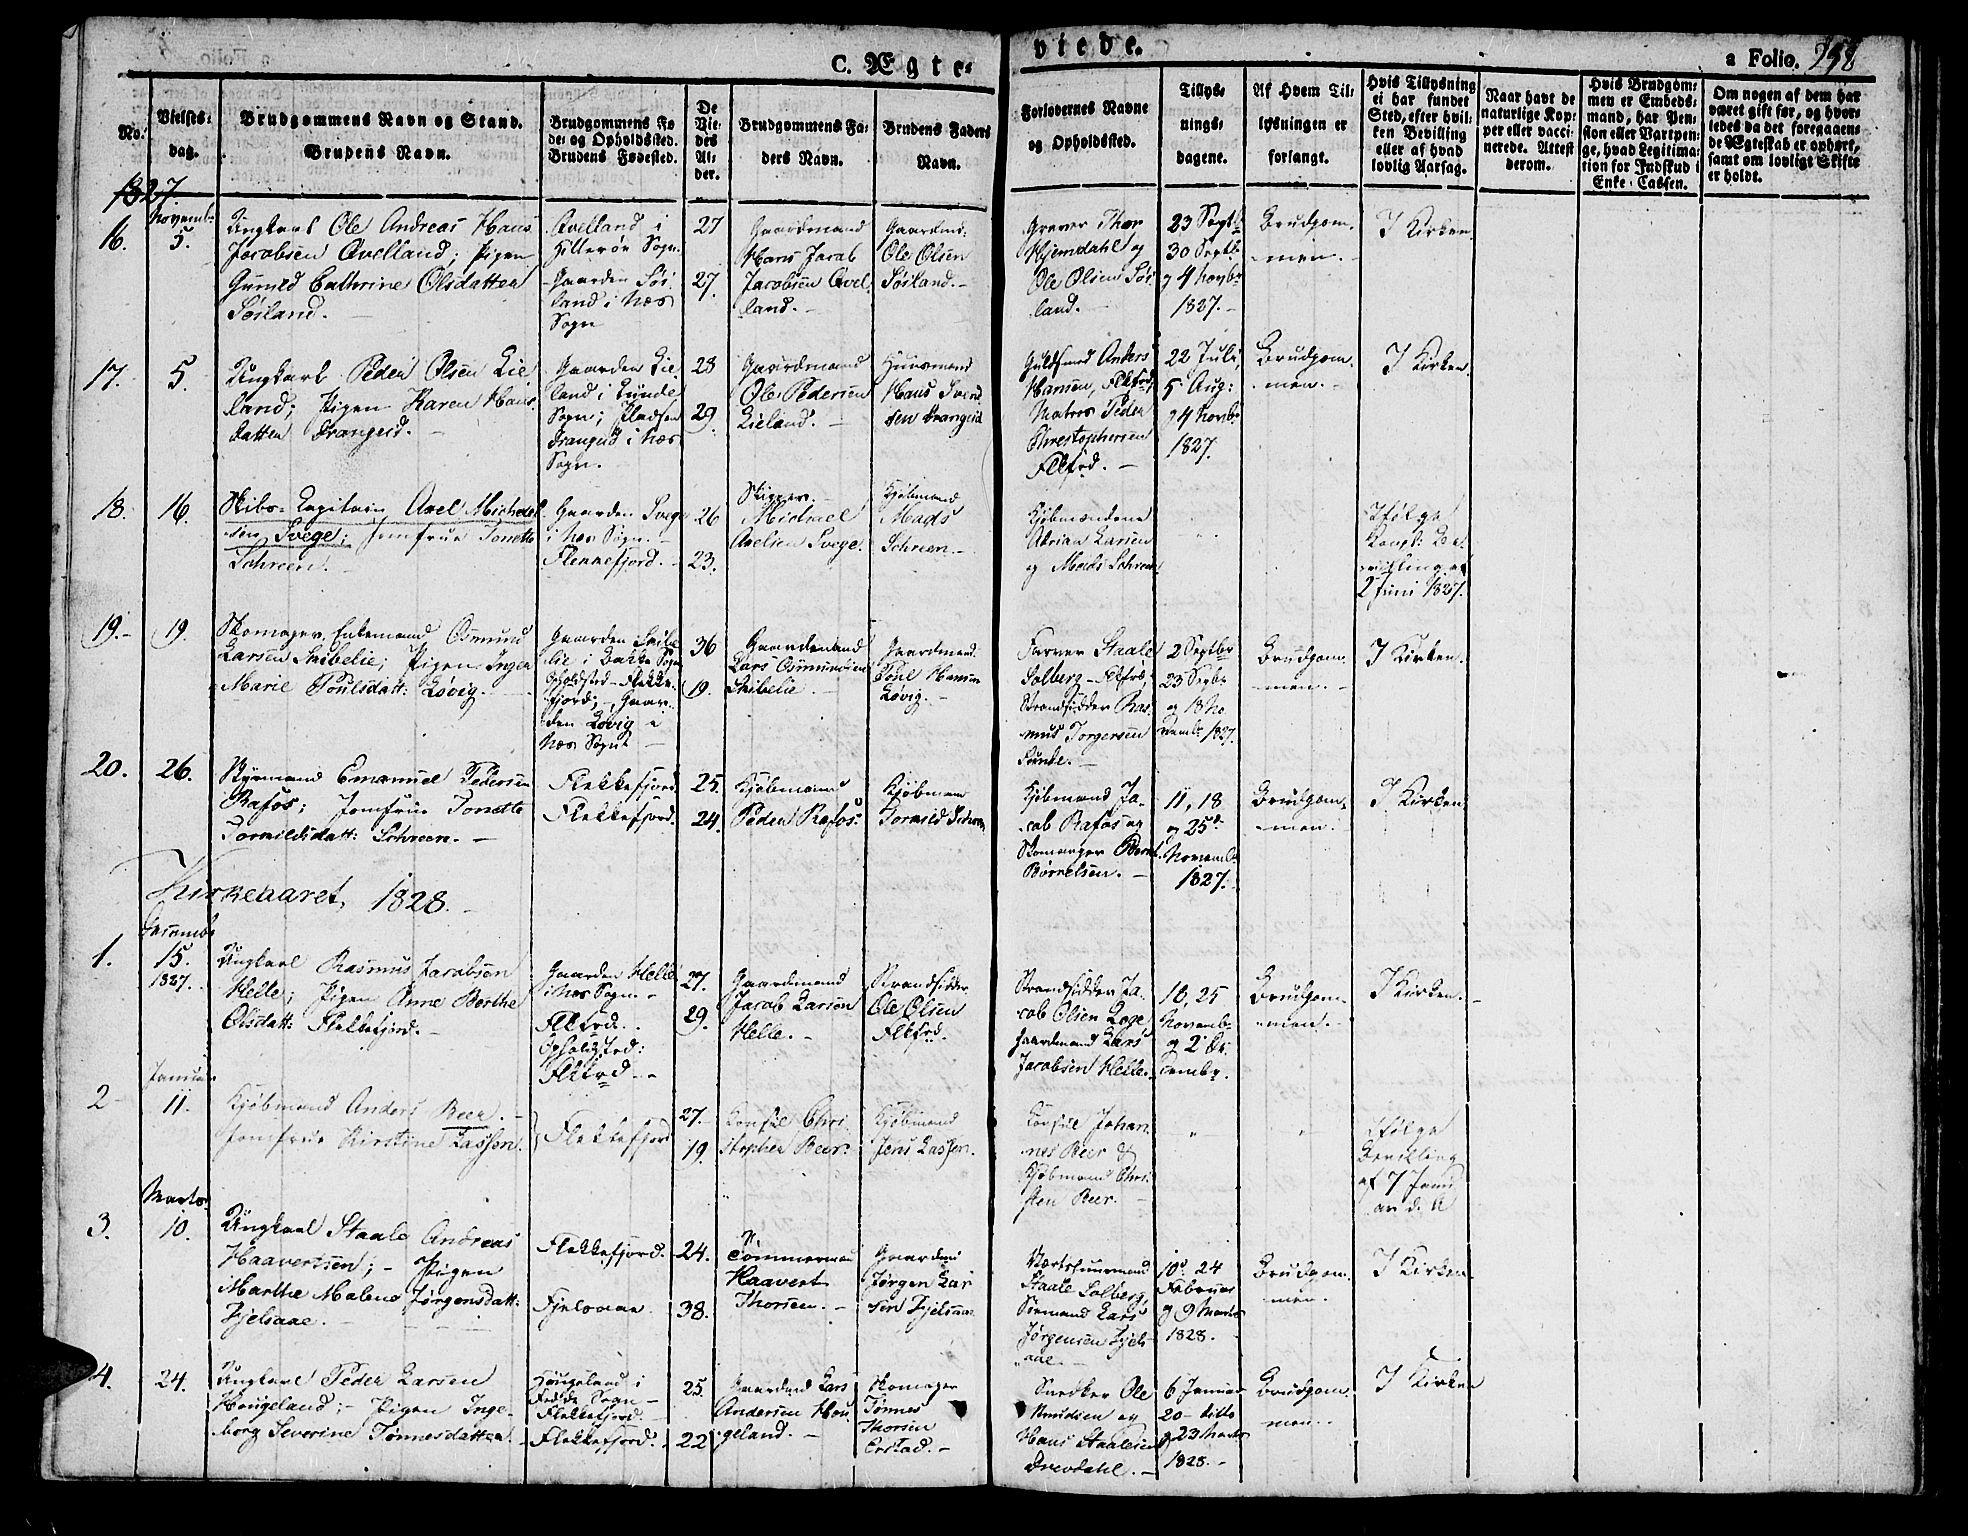 C. Ægte-
viede.
a Folio. 258
No:
Vielses-
dag.
Brudgommens Navn og Stand.
Brudens Navn.
Brudgommens Fø
de- og Opholdssted.
Brudens Fødested.
De
Vie-
des
Al-
der.
Brudgommens Fa-
ders Navn.
Brudens Faders
Navn.
Forlovernes Navne
og Opholdsted.
Tillys-
nings-
dagene.
Af Hvem Til-
lysningen er
forlangt.
Hvis Tillysning
ei har fundet
Sted, efter hvil-
ken Bevilling
eller af hvad
lovlig Aarsag.
Naar havt de
naturlige Kop-
per eller vacci-
nerede. Attest
derom.
Hvis Brudgom-
men er Embeds-
mand, har Pen-
sion eller Vartpen-
ge, hvad Legitima-
tion for Indskud i
Enke-Cassen.
Om nogen af dem har
været gift før, og hvor-
ledes da det foregaaen-
de Ægteskab er ophørt,
samt om lovligt Skifte
er holdt.
1827.
Novemb.
16.
5.
Ungkarl Ole Andreas Hans
Jacobsen Qvelland; Pigen
Gunild Cathrine Olsdatter
Søiland.
Qvelland i
Hitterøe Sogn.
Gaarden Søi
land i Næs
Sogn
27
27.
Gaardmand
Hans Jacob
Jacobsen Qvel
land.
Gaardmd:
Ole Olsen
Søiland.
Graver Thor
Hjemdahl og
Ole Olsen Søi
land.
23 Septb
30 Septb
og 4 Novbr
1827.
Brudgom-
men.
I Kirken.
17.
5.
Ungkarl Peder Olsen Lie
land; Pigen Karen Hans-
datter Drangeid.
Gaarden Lie
land i Qvinde
Sogn; Pladsen
Drangeid i Næs
Sogn.
23
29.
Gaardmand
Ole Pedersen
Lieland.
Huusmand
Hans Svend
sen Drangeid
Guldsmed Anders
Hansen, Flkfrd;
Matros Peder
Christophersen
Flkfrd.
22 Juli,
5 Aug:
og 4 Novbr
1827.
Brudgom-
men.
I Kirken.
18.
16.
Skibs-Capitain Axel Michael
sen Svege; Jomfrue Tonette
Schreen.
Gaarden Svege
i Næs Sogn.
Flekkefjord.
26
23.
Skipper
Michael
Axelsen Svege.
Kjøbmand
Mads
Schreen.
Kjøbmændene
Adrian Larsen
og Mads Schreen
Ifølge
Kongl: Be-
villing af
2 Juni 1827.
19.
19.
Skomager, Enkemand Osmund
Larsen Snibelie; Pigen Inger
Marie Poulsdatt: Løvig.
Gaarden Snibe
lie i Bakke Sogn
Opholdsted Flekke-
fjord; Gaar-
den Løvig i
Næs Sogn
36
19.
Gaardmand
Lars Osmundsen
Snibelie.
Gaardmand
Poul Hansen
Løvig.
Farver Staale
Solberg Flkfrd;
Strandsidder Ras-
mus Torgersen
2 Septbr
23 Septbr
og 18 No
vemb. 1827.
Brudgom-
men.
I Kirken.
20.
26.
Styrmand Emanuel Pedersen
Rafos; Jomfrue Tonette
Tormildsdatt: Schreen.
Flekkefjord.
Flekkefjord.
25.
24.
Kjøbmand
Peder Rafos.
Kjøbmand
Tormild Schreen
Kjøbmand Ja-
cob Rafos og
Skomager Bernt
Børnelsen.
11, 18
og 25d
Novemb
1827.
Brudgom-
men.
I Kirken
Kirkeaaret, 1828.
Decemb
1.
15.
1827.
Ungkarl Rasmus Jacobsen
Helle; Pigen Anne Berthe
Olsdatt: Flekkefjord.
Gaarden Helle
i Næs Sogn
Flkfrd.
Opholdsted:
Flkfrd
27.
29.
Gaardmand
Jacob Larsen
Helle.
Strandsidder
Ole Olsen
Flkfrd.
Strandsidder Ja-
cob Olsen Loge
Gaardmand Lars
Jacobsen Helle.
18, 25
Novemb.
og 2 De
cembr.
Brudgom-
men.
I Kirken.
Januar
2
11.
Kjøbmand Anders Beer.
Jomfrue Kirstine Lassen.
Flekkefjord
27.
19.
Konsul Chri
stopher Beer.
Kjøbmand
Jens Lassen.
Konsul Johan
nes Beer &
Kjøbmand Chri
sten Beer.
Ifølge
Bevilling
af 7 Janu
ar d. A
Marts
3.
10.
Ungkarl Staale Andreas
Haavertsen; Pigen
Marthe Malene Jørgensdatt:
Fjelsaae.
Flekkefjord.
Fjelsaae.
24.
38.
Tømmermand
Haavert
Thorsen.
Gaardmd
Jørgen Lar
sen Fjelsaae
Værtshuusmand
Staale Solberg,
Lars
Jørgensen Fjels-
aae.
10d 24
Februar
og 9 Marts
1828.
Brudgom-
men.
I Kirken
4.
24.
Ungkarl Peder Larsen
Hougeland; Pigen Inge-
borg Severine Tønnesdatter.
Hougeland i
Fedde Sogn
Flekkefjord.
Flekkefjord.
25.
22
Gaardmd Lars
Andersen Hou
geland.
Skomager
Tønnes
Thorsen
Erstad.
Snedker Ole
Knudsen og
Hans Staalesen
Drevdahl.
6 Januar
20 ditto
og 23 Marts
1828.
Brudgom-
men.
I Kirken